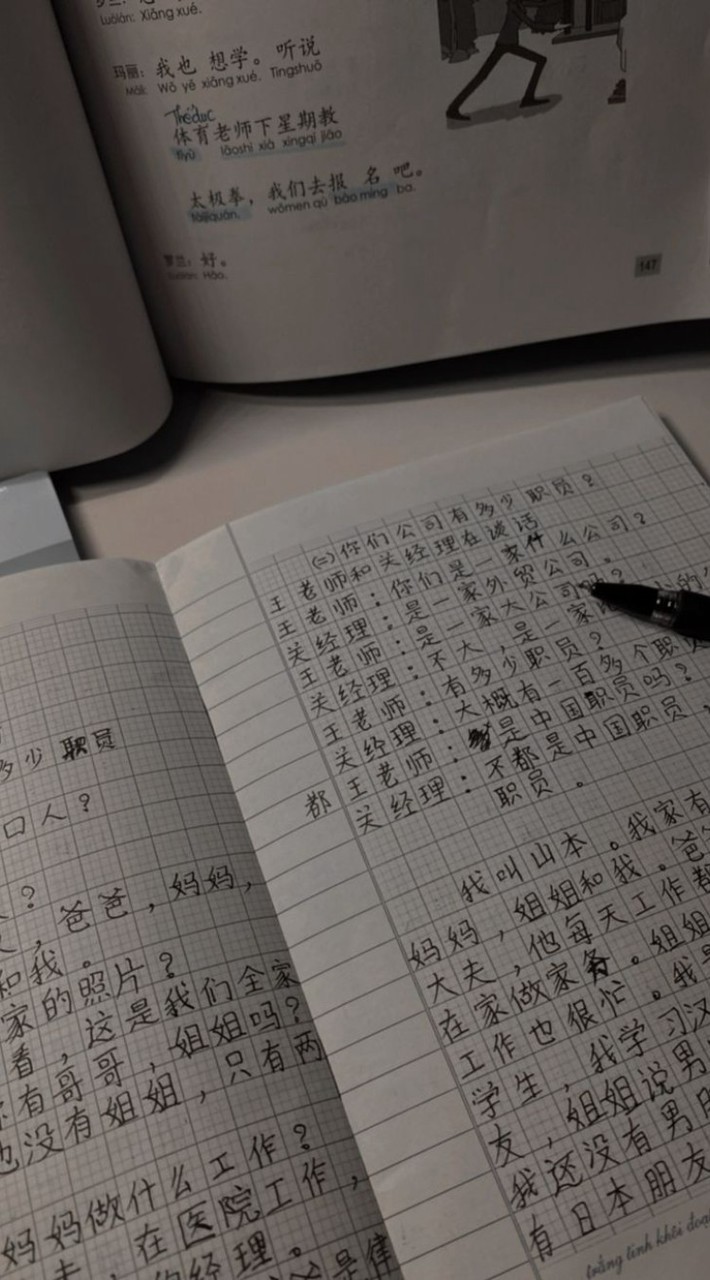 Luólán: Xiǎng xué.
玛丽: 我也 想学。 听说
Mǎlì: Wǒ yě xiǎng xué. Tīngshuō
Thể dục
体育老师下星期教
tǐyù lǎoshī xià xīngqī jiāo
太极拳， 我们去报 名 吧。
tàijíquán, wǒmen qù bào míng ba.
罗兰: 好。
Luólán: Hǎo.
147
(二) 你们公司有多少职员？
王老师和关经理在谈话
王老师：你们是一家什么公司？
关经理：是一家外贸公司。
王老师：是一家大公司吗？
关经理：不大，是一家
王老师：有多少职员？
关经理：大概有一百多个职员
都 王老师：是中国职员吗？
关经理：不都是中国职员，
职员。
我叫山本。我家有
妈妈，姐姐和我。爸
大夫，他每天工作都
在家做家务。姐姐
工作也很忙。我是
学生，我学习汉
友，姐姐说男
我还没有男朋
有日本朋友
trắng tinh khôi đoạ
多少职员
口人？
？
，爸爸，妈妈，
和我。
家的照片？
看，这是我们全家
你有哥哥，姐姐吗？
也没有姐姐，只有两
妈妈做什么工作？
，在医院工作，
经理。